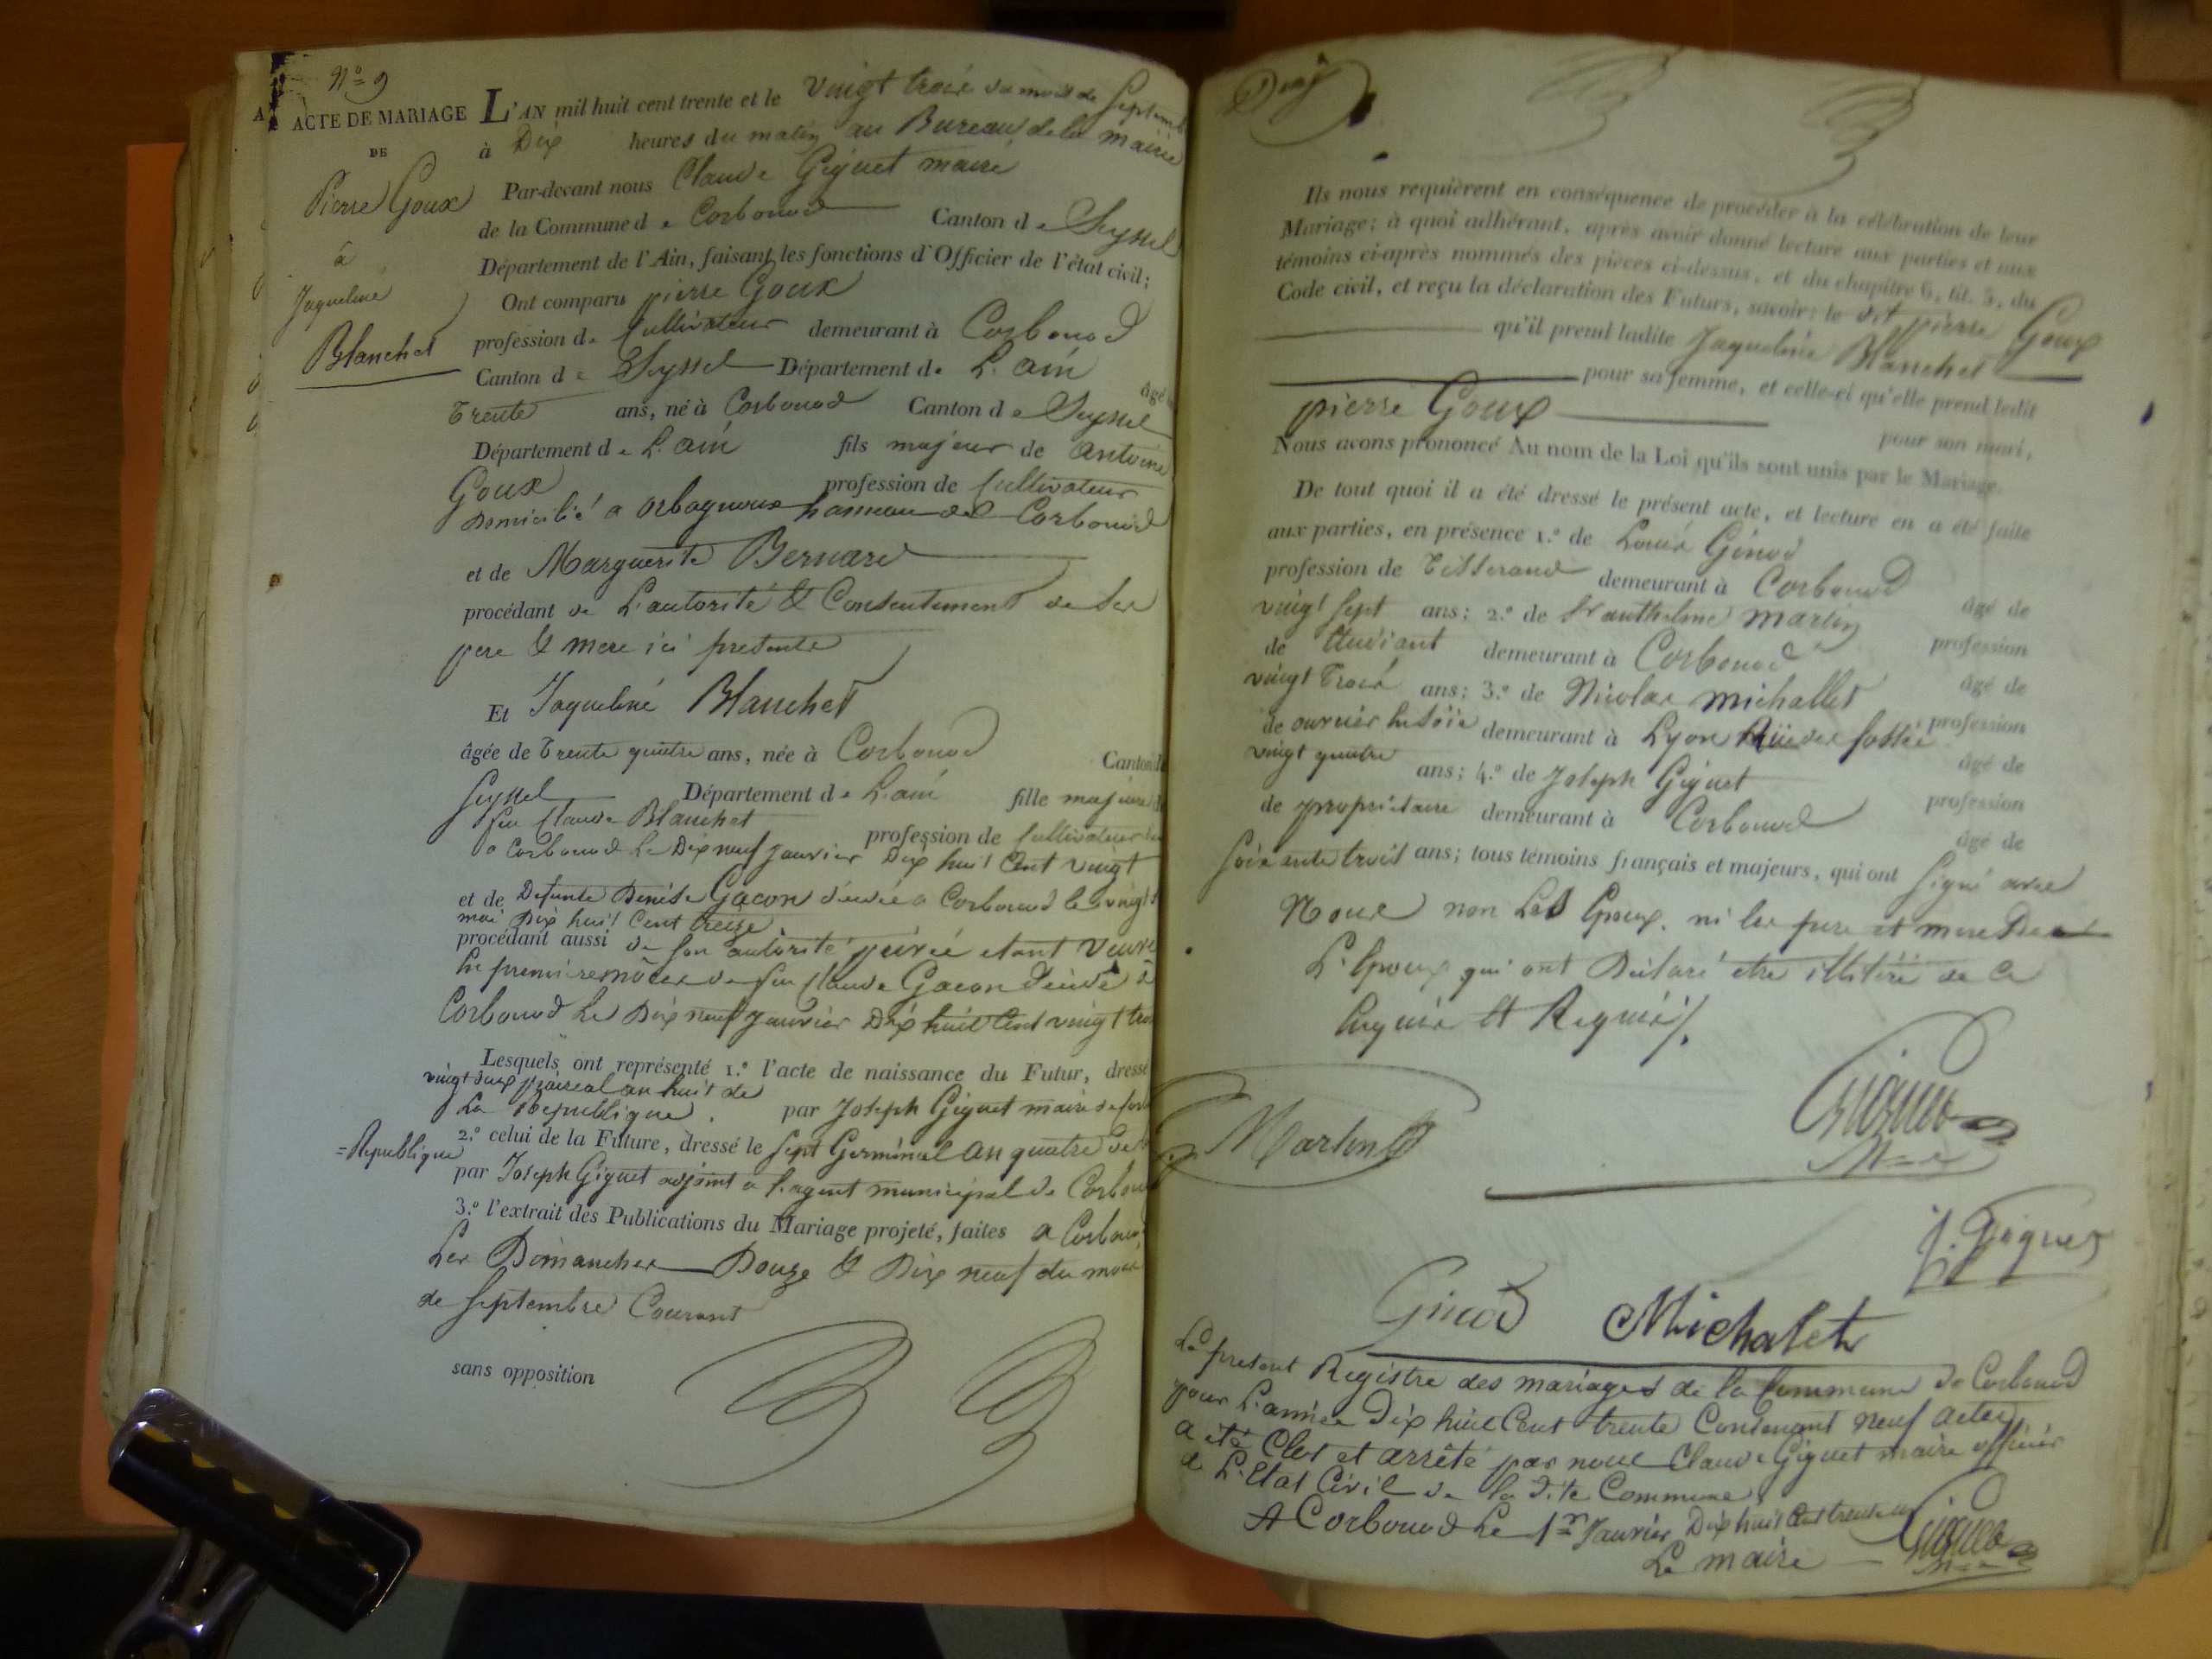 N.º 9
ACTE DE MARIAGE
DE
Pierre Goux
à
Jaqueline
Blanchet
L'AN mil huit cent trente et le vingt trois du mois de Septemb
à Dix heures du matin au Bureau de la mairie
Par-devant nous Claude Giguet maire
de la Commune de Corbonod Canton de Seyssel
Département de l'Ain, faisant les fonctions d'Officier de l'état civil;
Ont comparu pierre Goux
profession de Cultivateur demeurant à Corbonod
Canton de Seyssel Département de L'ain âgé
Trente ans, né à Corbonod Canton de Seyssel
Département de L'ain fils majeur de antoine
Goux profession de Cultivateur
Domicilié a orbagnoux hameau de Corbonod
et de Marguerite Bernard
procédant de L'autorité & Consentement de ses
pere & mere ici presents
Et Jaqueline Blanchet
âgée de Trente quatre ans, née à Corbonod Canton
Seyssel Département de L'ain fille majeure
feu Claude Blanchet profession de Cultivateur
a Corbonod Le Dix neuf janvier Dix huit Cent vingt
et de Defunte Denise Gacon décédée a Corbonod le vingt
mai Dix huit Cent treize
procédant aussi de son autorité privée etant veuve
en premiere nôces de feu Claude Gacon décédé à
Corbonod Le Dix neuf janvier Dix huit Cent vingt
Lesquels ont représenté 1.º l'acte de naissance du Futur, dressé
vingt deux prairéal an huit de
La Republique. par Joseph Giguet maire de
2.º celui de la Future, dressé le sept Germinal an quatre de
=Republique
par Joseph Giguet adjoint a l'agent municipal de Corbonod
3.º l'extrait des Publications du Mariage projeté, faites a Corbonod
Les Dimanches Douze & Dix neuf du mois
de septembre Courant
sans opposition
Ils nous requièrent en conséquence de procéder à la célébration de leur
Mariage; à quoi adhérant, après avoir donné lecture aux parties et aux
témoins ci-après nommés des pièces ci-dessus, et du chapitre 6, tit. 5, du
Code civil, et reçu la déclaration des Futurs, savoir: le dit pierre Goux
qu'il prend ladite Jaqueline Blanchet
pour sa femme, et celle-ci qu'elle prend ledit
pierre Goux pour son mari,
Nous avons prononcé Au nom de la Loi qu'ils sont unis par le Mariage.
De tout quoi il a été dressé le présent acte, et lecture en a été faite
aux parties, en présence 1.º de Louis Ginod
profession de Tisserand demeurant à Corbonod âgé de
vingt sept ans; 2.º de anthelme martin profession
de étudiant demeurant à Corbonod âgé de
vingt Trois ans; 3.º de Nicolas michallet profession
de ouvrier en soïe demeurant à Lyon Rüe des fossés âgé de
vingt quatre ans; 4.º de Joseph Giguet profession
de propriétaire demeurant à Corbonod âgé de
soixante trois ans; tous témoins français et majeurs, qui ont signé avec
Nous non Les Epoux. ni les pere et mere De
L'Epoux qui ont Déclaré etre illitéré de ce
Enquis et Requis/.
Martin
Giguet
J. Giguet
Ginod
Michalet
Le present Registre des mariages de la Commune de Corbonod
pour L'année Dix huit Cent trente Contenant neuf actes
a été Clot et arrêté par nous Claude Giguet maire officier
de L'Etat Civil de la dite Commune,
A Corbonod Le 1er Janvier Dix huit Cent trente un
Le maire Giguet